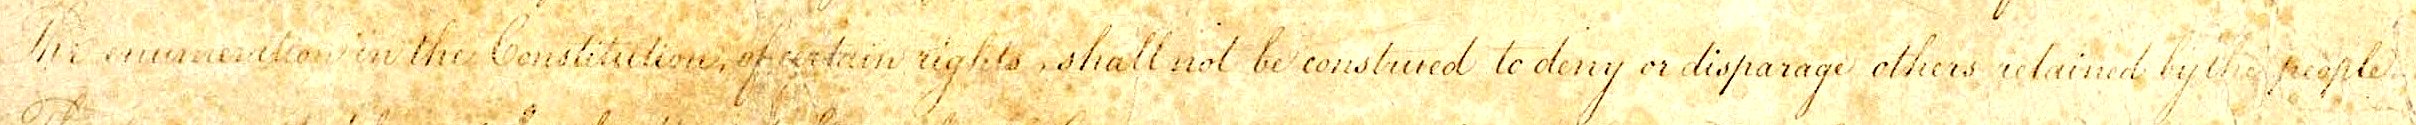 The enumeration in the Constitution, of certain rights, shall not be construed to deny or disparage others retained by the people.